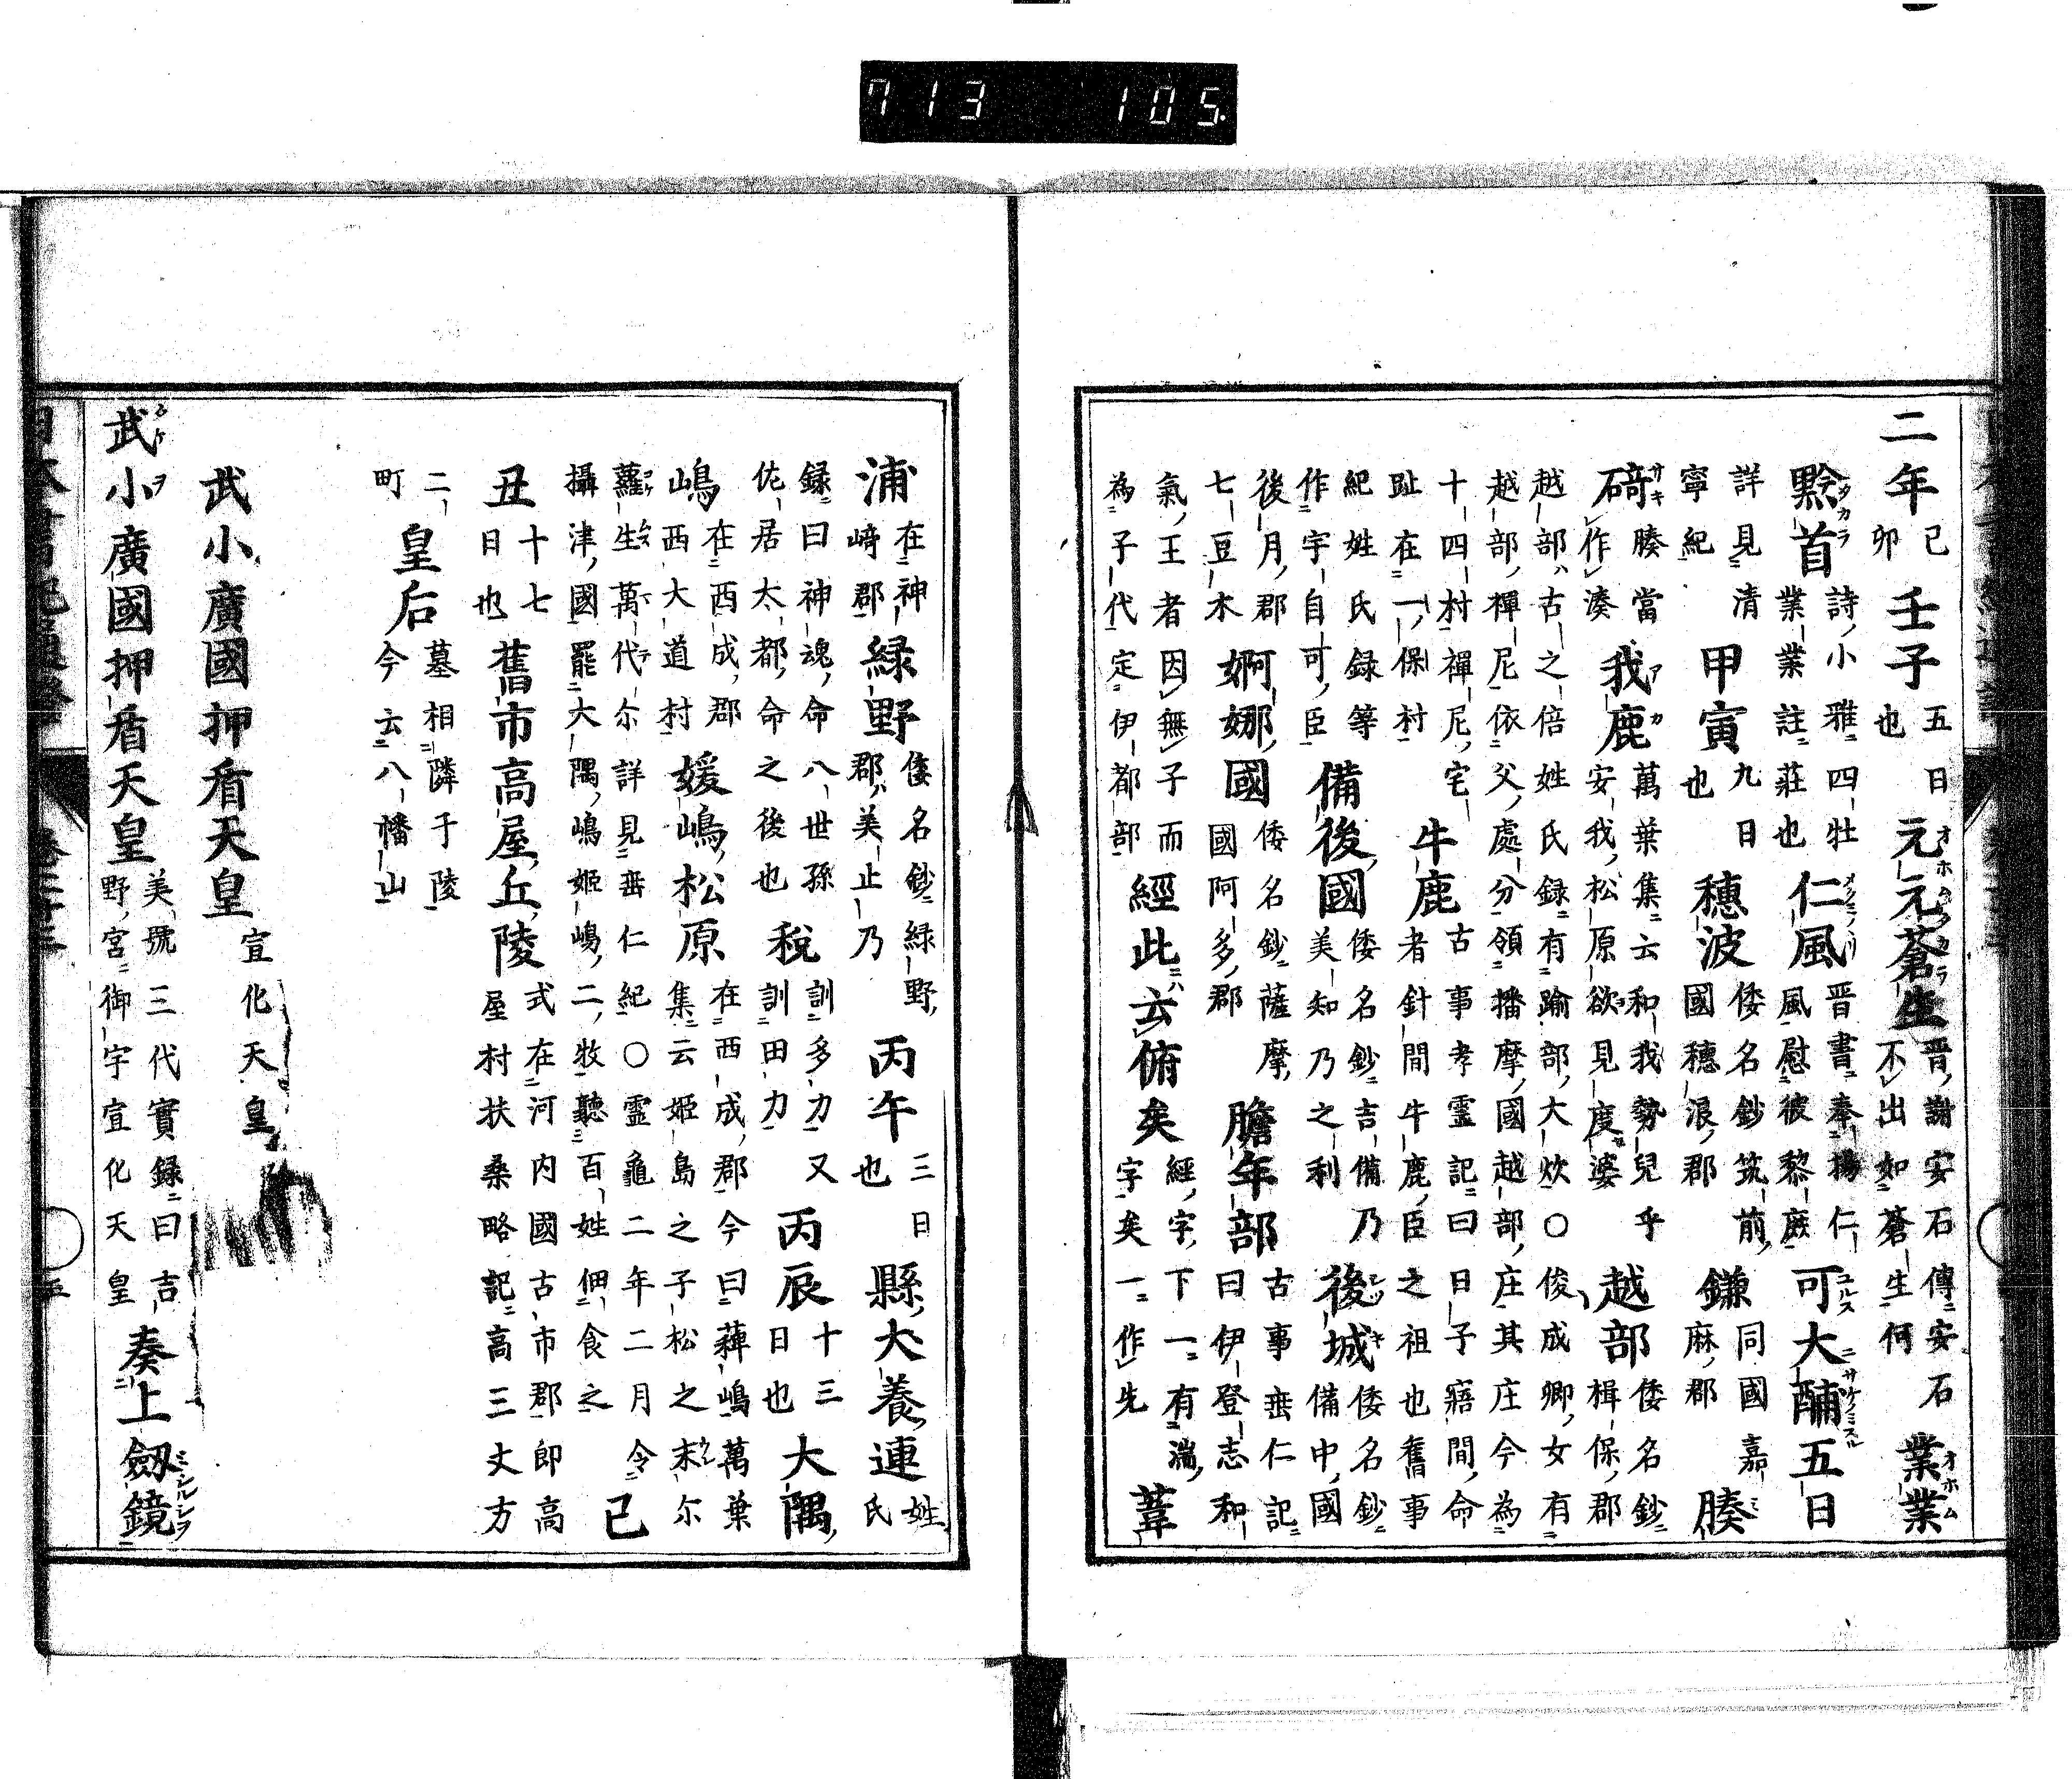 713 105.
二年 己卯 壬子 五日也 元元蒼生 晋謝安石傳安石不出如蒼生何 業業
黔首 詩小雅四牡業業註莊也 仁風 晋書奉揚仁風慰彼黎庶 可大酺五日
詳見清寧紀 甲寅 九日也 穗波 倭名鈔筑前國穗浪郡 鎌 同國嘉麻郡 腠
碕 腠當作湊 我鹿 萬葉集云和我勢兒乎安我松原欲見度婆 越部 倭名鈔揖保郡
越部古之倍姓氏録有踰部大炊〇俊成卿女有
越部禪尼依父處分領播摩國越部庄其庄今為
十四村禪尼宅趾在一保村 牛鹿 古事孝霊記曰日子寤間命者針間牛鹿臣之祖也舊事
紀姓氏録等作宇自可臣 備後國 倭名鈔吉備乃美知乃之利 後城 倭名鈔備中國
後月郡 婀娜國 倭名鈔薩摩國阿多郡 膽年部 古事垂仁記曰伊登志和
七豆木
氣王者因無子而為子代定伊都部 經此云俯矣 經字下一有湍字矣一作先 葦
浦 在神﨑郡 緑野 倭名鈔緑野郡美止乃 丙午 三日也 縣犬養連 姓氏
録曰神魂命八世孫佐居太都命之後也 税 訓多力又訓田力 丙辰 十三日也 大隅
嶋 在西成郡西大道村 媛嶋松原 在西成郡今曰稗嶋萬葉集云姫島之子松之末尓
蘿生萬代尓詳見垂仁紀〇霊龜二年二月令
攝津國罷大隅嶋姫嶋二牧聽百姓佃食之 己
丑 十七日也 舊市高屋丘陵 式在河内國古市郡即高屋村扶桑略記高三丈方
二町 皇后 墓相隣于陵今云八幡山
武小廣國押盾天皇 宣化天皇
武小廣國押盾天皇 美號三代實録曰吉野宮御宇宣化天皇 奏上劔鏡